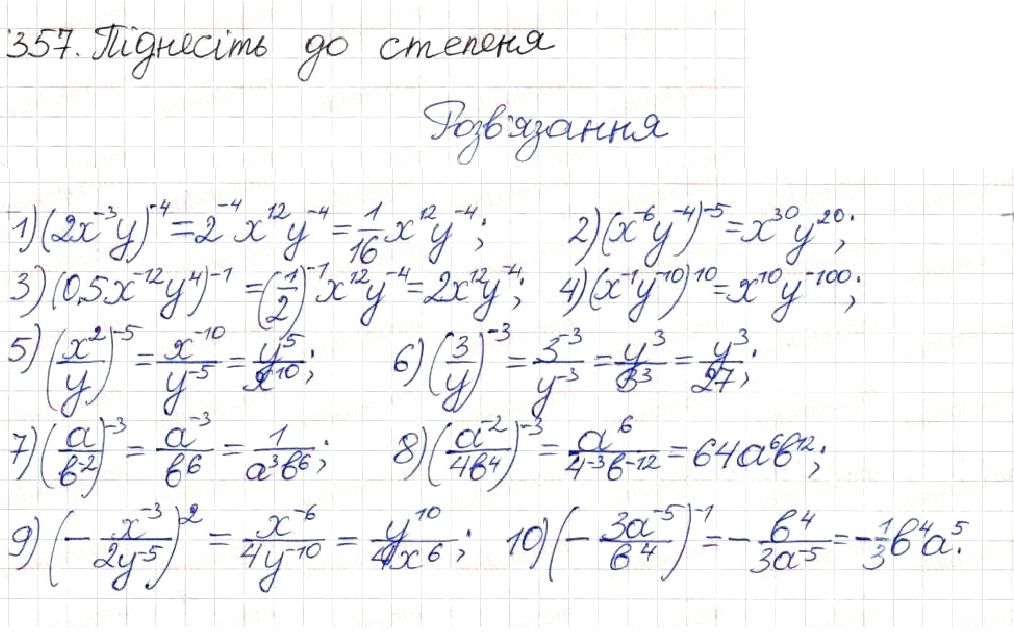 357. Піднесіть до степеня
Розв'язання
1) (2x⁻³y)⁻⁴ = 2⁻⁴x¹²y⁻⁴ = 1/16 x¹²y⁻⁴; 2) (x⁻⁶y⁻⁴)⁻⁵ = x³⁰y²⁰;
3) (0,5x⁻¹²y⁴)⁻¹ = (1/2)⁻¹x¹²y⁻⁴ = 2x¹²y⁻⁴; 4) (x⁻¹y⁻¹⁰)¹⁰ = x¹⁰y⁻¹⁰⁰;
5) (x²/y)⁻⁵ = x⁻¹⁰/y⁻⁵ = y⁵/x¹⁰; 6) (3/y)⁻³ = 3⁻³/y⁻³ = y³/3³ = y³/27;
7) (a/b⁻²)⁻³ = a⁻³/b⁶ = 1/a³b⁶; 8) (a⁻²/4b⁴)⁻³ = a⁶/4⁻³b⁻¹² = 64a⁶b¹²;
9) (-x⁻³/2y⁻⁵)² = x⁻⁶/4y⁻¹⁰ = y¹⁰/4x⁶; 10) (-3a⁻⁵/b⁴)⁻¹ = -b⁴/3a⁻⁵ = -1/3 b⁴a⁵.